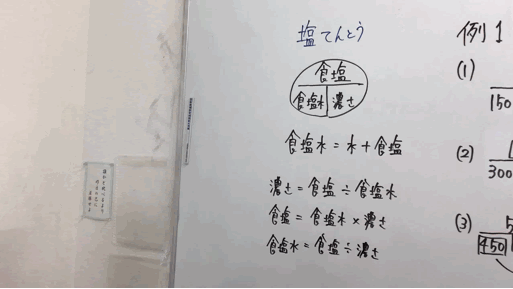 塩てんとう
食塩
食塩水 濃さ
食塩水 = 水 + 食塩
濃さ = 食塩 ÷ 食塩水
食塩 = 食塩水 × 濃さ
食塩水 = 食塩 ÷ 濃さ
例1
(1)
150
(2)
300
(3) 5
450